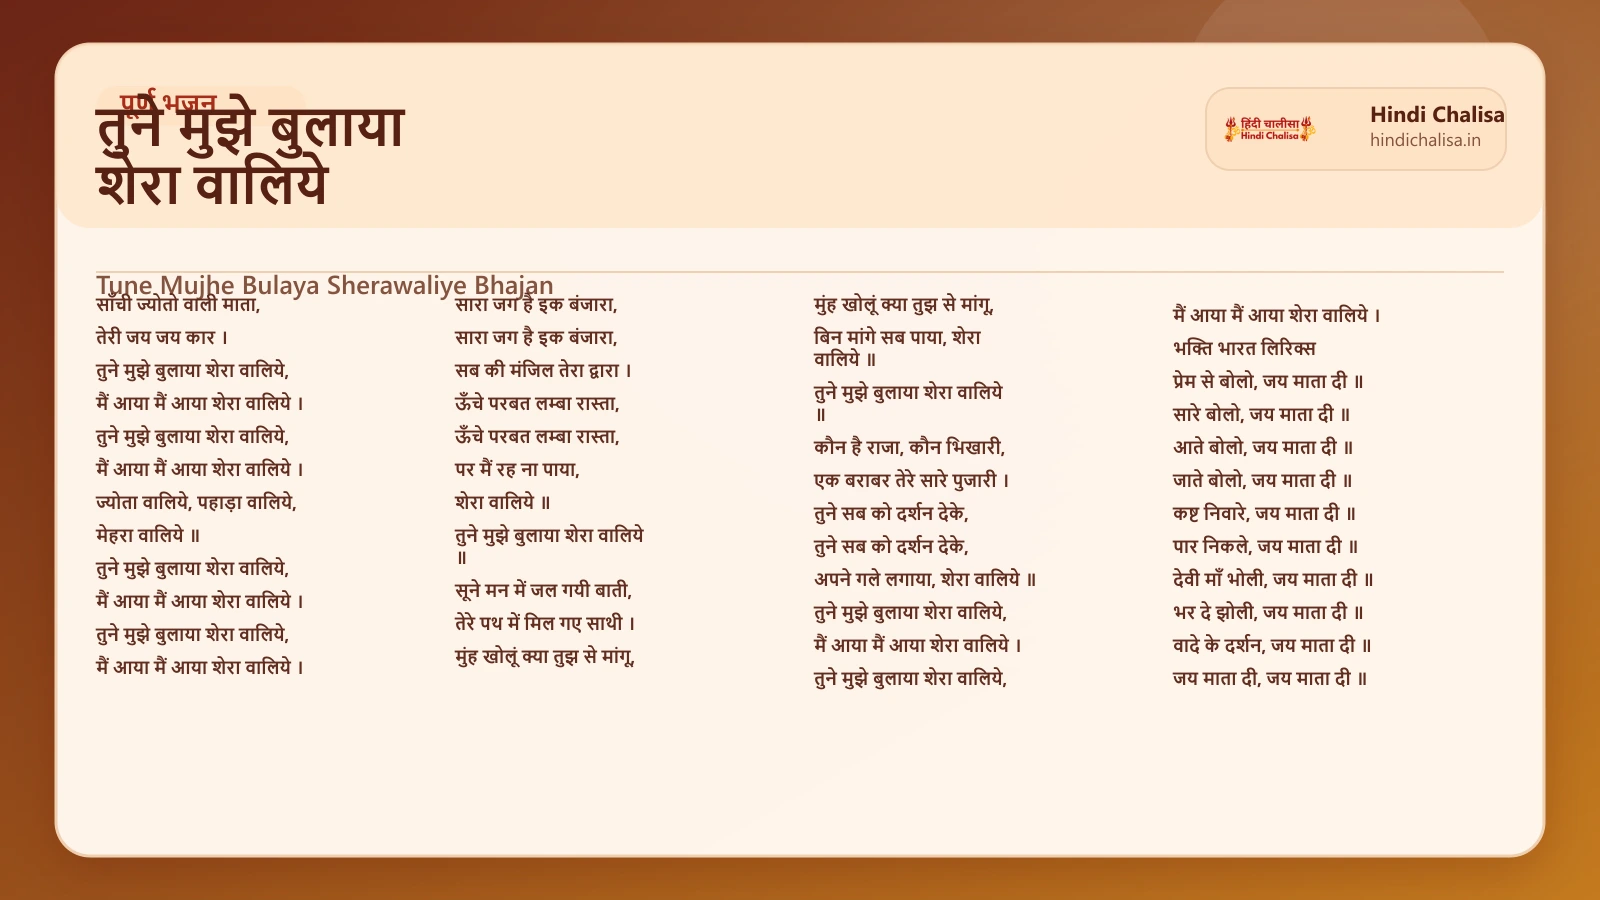 पूर्ण भजन
तुने मुझे बुलाया
शेरा वालिये
हिंदी चालीसा
Hindi Chalisa
Hindi Chalisa
hindichalisa.in
Tune Mujhe Bulaya Sherawaliye Bhajan
साँची ज्योतो वाली माता,
तेरी जय जय कार ।
तुने मुझे बुलाया शेरा वालिये,
मैं आया मैं आया शेरा वालिये ।
तुने मुझे बुलाया शेरा वालिये,
मैं आया मैं आया शेरा वालिये ।
ज्योता वालिये, पहाड़ा वालिये,
मेहरा वालिये ॥
तुने मुझे बुलाया शेरा वालिये,
मैं आया मैं आया शेरा वालिये ।
तुने मुझे बुलाया शेरा वालिये,
मैं आया मैं आया शेरा वालिये ।
सारा जग है इक बंजारा,
सारा जग है इक बंजारा,
सब की मंजिल तेरा द्वारा ।
ऊँचे परबत लम्बा रास्ता,
ऊँचे परबत लम्बा रास्ता,
पर मैं रह ना पाया,
शेरा वालिये ॥
तुने मुझे बुलाया शेरा वालिये
॥
सूने मन में जल गयी बाती,
तेरे पथ में मिल गए साथी ।
मुंह खोलूं क्या तुझ से मांगू,
मुंह खोलूं क्या तुझ से मांगू,
बिन मांगे सब पाया, शेरा
वालिये ॥
तुने मुझे बुलाया शेरा वालिये
॥
कौन है राजा, कौन भिखारी,
एक बराबर तेरे सारे पुजारी ।
तुने सब को दर्शन देके,
तुने सब को दर्शन देके,
अपने गले लगाया, शेरा वालिये ॥
तुने मुझे बुलाया शेरा वालिये,
मैं आया मैं आया शेरा वालिये ।
तुने मुझे बुलाया शेरा वालिये,
मैं आया मैं आया शेरा वालिये ।
भक्ति भारत लिरिक्स
प्रेम से बोलो, जय माता दी ॥
सारे बोलो, जय माता दी ॥
आते बोलो, जय माता दी ॥
जाते बोलो, जय माता दी ॥
कष्ट निवारे, जय माता दी ॥
पार निकले, जय माता दी ॥
देवी माँ भोली, जय माता दी ॥
भर दे झोली, जय माता दी ॥
वादे के दर्शन, जय माता दी ॥
जय माता दी, जय माता दी ॥